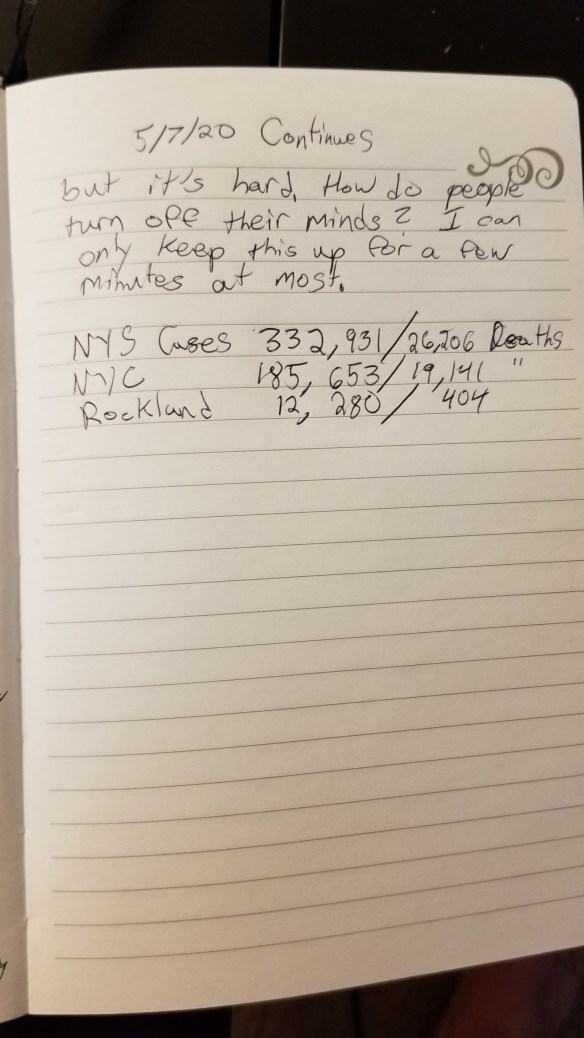 5/7/20 Continues
but it's hard. How do people
turn off their minds? I can
only keep this up for a few
minutes at most.
NYS Cases 332,931/26,206 Deaths
NYC 185,653/19,141 "
Rockland 12,280/404